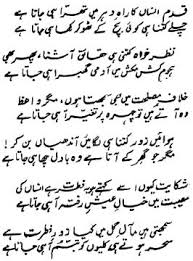 قدم انساں کا راہِ دہر میں تھرا ہی جاتا ہے
چلے کتنا ہی کوئی بچ کے ٹھوکر کھا ہی جاتا ہے
نظر خواہ کتنی ہی حقائق آشنا، پھر بھی
ہجومِ کشمکش میں آدمی گھبرا ہی جاتا ہے
خلافِ مصلحت میں بھی سمجھتا ہوں، مگر واعظ
وہ آتے ہیں تو چہرہ پر تغیر آ ہی جاتا ہے
ہوائیں زور کتنا ہی لگائیں آندھیاں بن کر!
مگر جو گھر کے آتا ہے وہ بادل چھا ہی جاتا ہے
شکایت کیوں اسے کہتے ہو یہ فطرت ہے انساں کی
مصیبت میں خیالِ عیشِ رفتہ آ ہی جاتا ہے
سمجھتی ہیں مآلِ گل مگر کیا زورِ فطرت ہے
سحر ہوتے ہی کلیوں کو تبسم آ ہی جاتا ہے